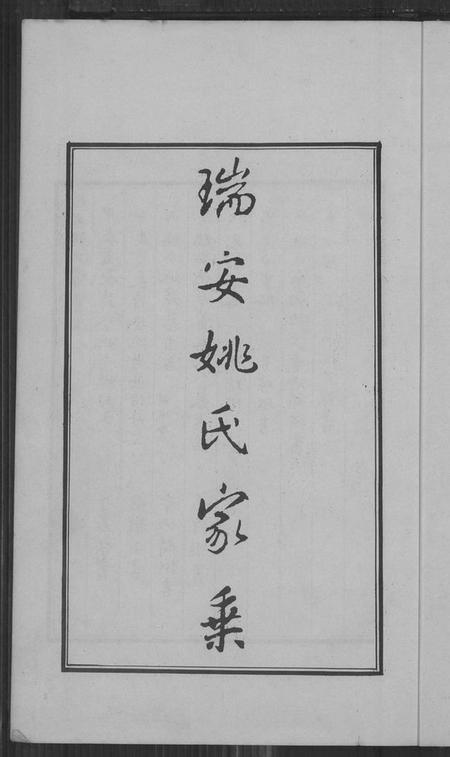 瑞安姚氏家乘